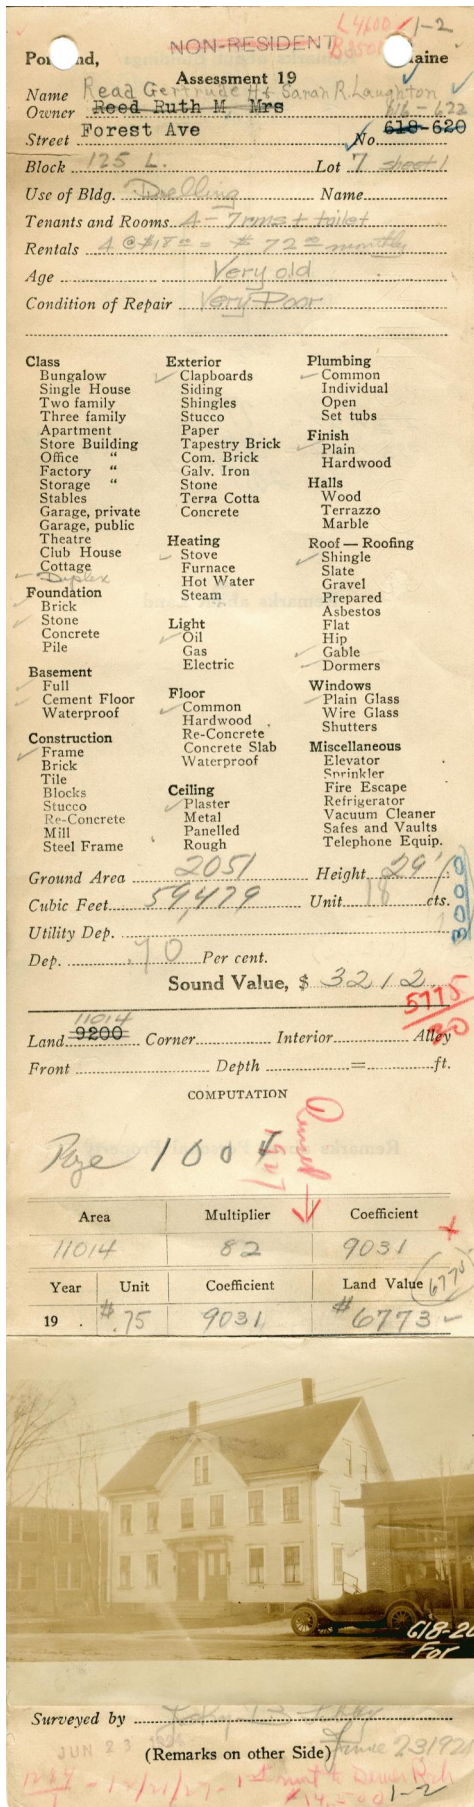 L4600 1-2
NON-RESIDENT B3500
Po nd, aine
Assessment 19
Name Read Gertrude H & Sarah R. Laughton
Owner Reed Ruth M Mrs 616-622
Street Forest Ave No. 618-620
Block 125 L. Lot 7 sheet 1
Use of Bldg. Dwelling Name
Tenants and Rooms 4-7 rms + toilet
Rentals 4 @ $18 00 = $ 72 00 monthly
Age Very old
Condition of Repair Very Poor
Class
Bungalow
Single House
Two family
Three family
Apartment
Store Building
Office "
Factory "
Storage "
Stables
Garage, private
Garage, public
Theatre
Club House
Cottage
Duplex
Foundation
Brick
Stone
Concrete
Pile
Basement
Full
Cement Floor
Waterproof
Construction
Frame
Brick
Tile
Blocks
Stucco
Re-Concrete
Mill
Steel Frame
Exterior
Clapboards
Siding
Shingles
Stucco
Paper
Tapestry Brick
Com. Brick
Galv. Iron
Stone
Terra Cotta
Concrete
Heating
Stove
Furnace
Hot Water
Steam
Light
Oil
Gas
Electric
Floor
Common
Hardwood
Re-Concrete
Concrete Slab
Waterproof
Ceiling
Plaster
Metal
Panelled
Rough
Plumbing
Common
Individual
Open
Set tubs
Finish
Plain
Hardwood
Halls
Wood
Terrazzo
Marble
Roof — Roofing
Shingle
Slate
Gravel
Prepared
Asbestos
Flat
Hip
Gable
Dormers
Windows
Plain Glass
Wire Glass
Shutters
Miscellaneous
Elevator
Sprinkler
Fire Escape
Refrigerator
Vacuum Cleaner
Safes and Vaults
Telephone Equip.
Ground Area 2051 Height 29'
Cubic Feet 59,479 Unit 18 cts.
3000
Utility Dep.
Dep. .70 Per cent.
Sound Value, $ 3212.
5775
30
11014
Land 9200 Corner Interior Alley
Front Depth = ft.
COMPUTATION
Page 1004
Area Multiplier Coefficient
11014 82 9031
Year Unit Coefficient Land Value 6775
19 . $.75 9031 $6773
618-20
For
Surveyed by
JUN 23 June 23 192
(Remarks on other Side)
1-2